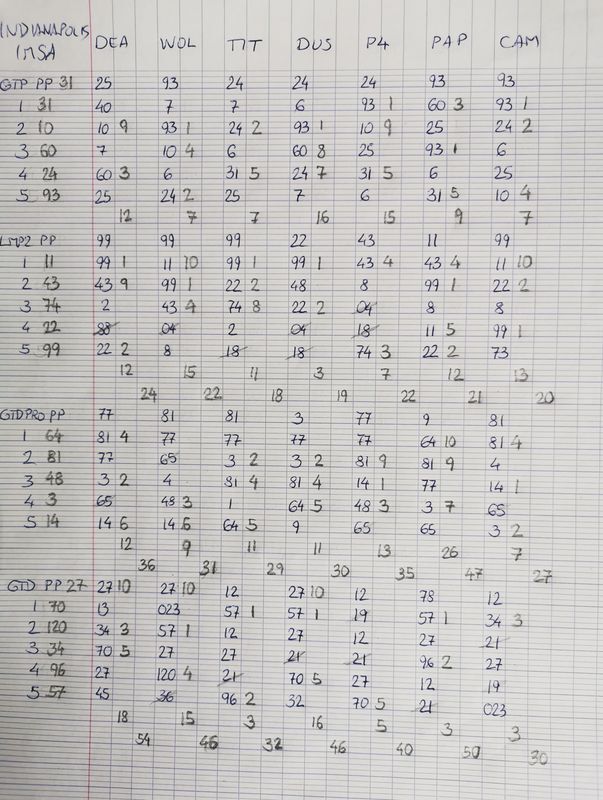 INDIANAPOLIS
IMSA DEA WOL TIT DUS P4 PAP CAM
GTP PP 31 25 93 24 24 24 93 93
1 31 40 7 7 6 93 1 60 3 93 1
2 10 10 9 93 1 24 2 93 1 10 9 25 24 2
3 60 7 10 4 6 60 8 25 93 1 6
4 24 60 3 6 31 5 24 7 31 5 6 25
5 93 25 24 2 25 7 6 31 5 10 4
12 7 7 16 15 9 7
LMP2 PP 99 99 99 22 43 11 99
1 11 99 1 11 10 99 1 99 1 43 4 43 4 11 10
2 43 43 9 99 1 22 2 48 8 99 1 22 2
3 74 2 43 4 74 8 22 2 04 8 8
4 22 88 04 2 04 18 11 5 99 1
5 99 22 2 8 18 18 74 3 22 2 73
12 15 11 3 7 12 13
24 22 18 19 22 21 20
GTDPRO PP 77 81 81 3 77 9 81
1 64 81 4 77 77 77 77 64 10 81 4
2 81 77 65 3 2 3 2 81 9 81 9 4
3 48 3 2 4 81 4 81 4 14 1 77 14 1
4 3 65 48 3 1 64 5 48 3 3 7 65
5 14 14 6 14 6 64 5 9 65 65 3 2
12 9 11 11 13 26 7
36 31 29 30 35 47 27
GTD PP 27 27 10 27 10 12 27 10 12 78 12
1 70 13 023 57 1 57 1 19 57 1 34 3
2 120 34 3 57 1 12 27 12 27 21
3 34 70 5 27 27 21 21 96 2 27
4 96 27 120 4 21 70 5 27 12 19
5 57 45 36 96 2 32 70 5 21 023
18 15 3 16 5 3 3
54 46 32 46 40 50 30